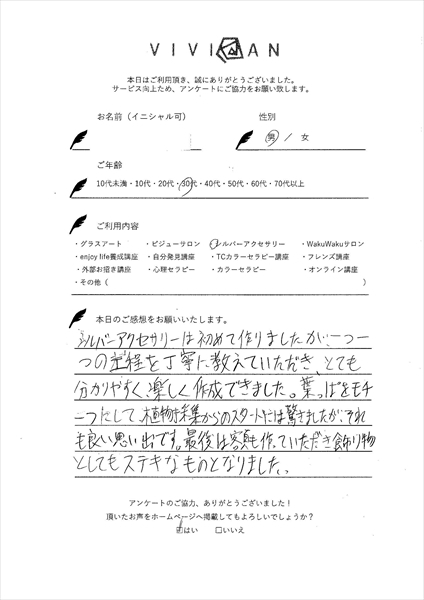 VIVIAN
本日はご利用頂き、誠にありがとうございました。
サービス向上ため、アンケートにご協力をお願い致します。
お名前（イニシャル可） 性別
男 ／ 女
ご年齢
10代未満・10代・20代・30代・40代・50代・60代・70代以上
ご利用内容
・グラスアート ・ビジューサロン ・シルバーアクセサリー ・WakuWakuサロン
・enjoy life養成講座 ・自分発見講座 ・TCカラーセラピー講座 ・フレンズ講座
・外部お招き講座 ・心理セラピー ・カラーセラピー ・オンライン講座
・その他（ ）
本日のご感想をお願いいたします。
シルバーアクセサリーは初めて作りましたが、一つ一
つの工程を丁寧に教えていただき、とても
分かりやすく、楽しく作成できました。葉っぱをモチ
ーフとして、植物採集からのスタートには驚きましたが、それ
も良い思い出です。最後は額も作っていただき飾り物
としてもステキなものとなりました。
アンケートのご協力、ありがとうございました！
頂いたお声をホームページへ掲載してもよろしいでしょうか？
☑はい □いいえ